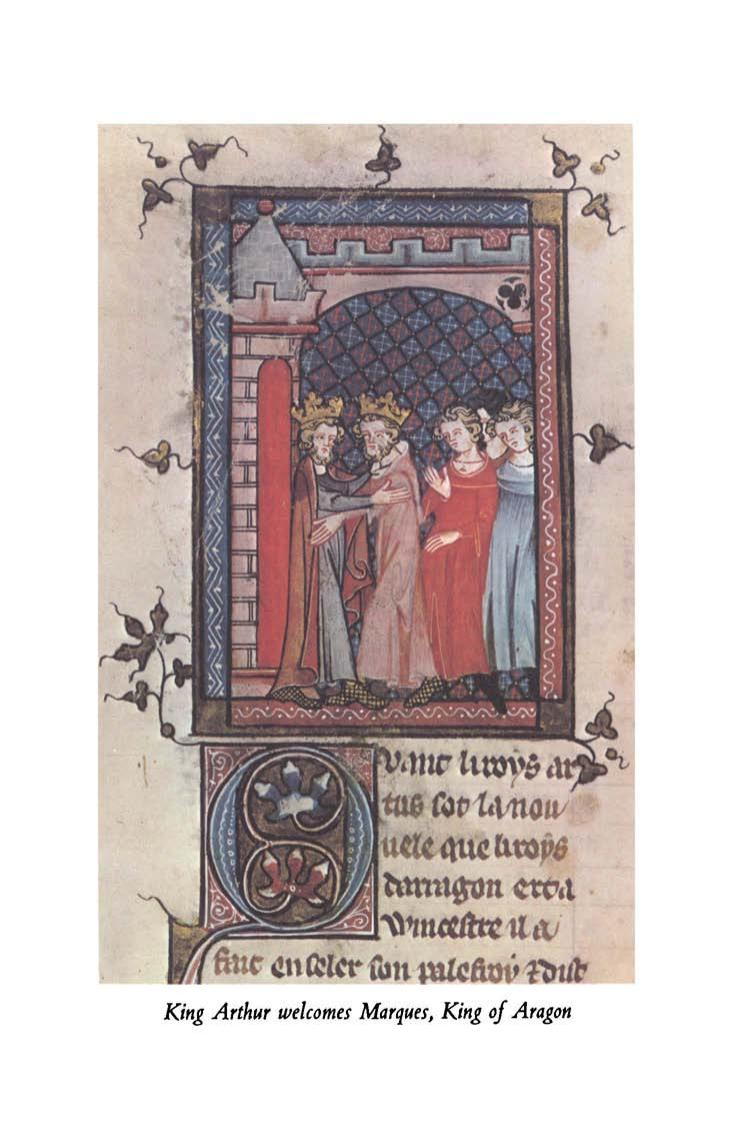 Quant li roys ar
tus sot la nou
uele que li roys
darragon ert a
Wincestre il a
fait enseler son palefroy ⁊ dist
King Arthur welcomes Marques, King of Aragon